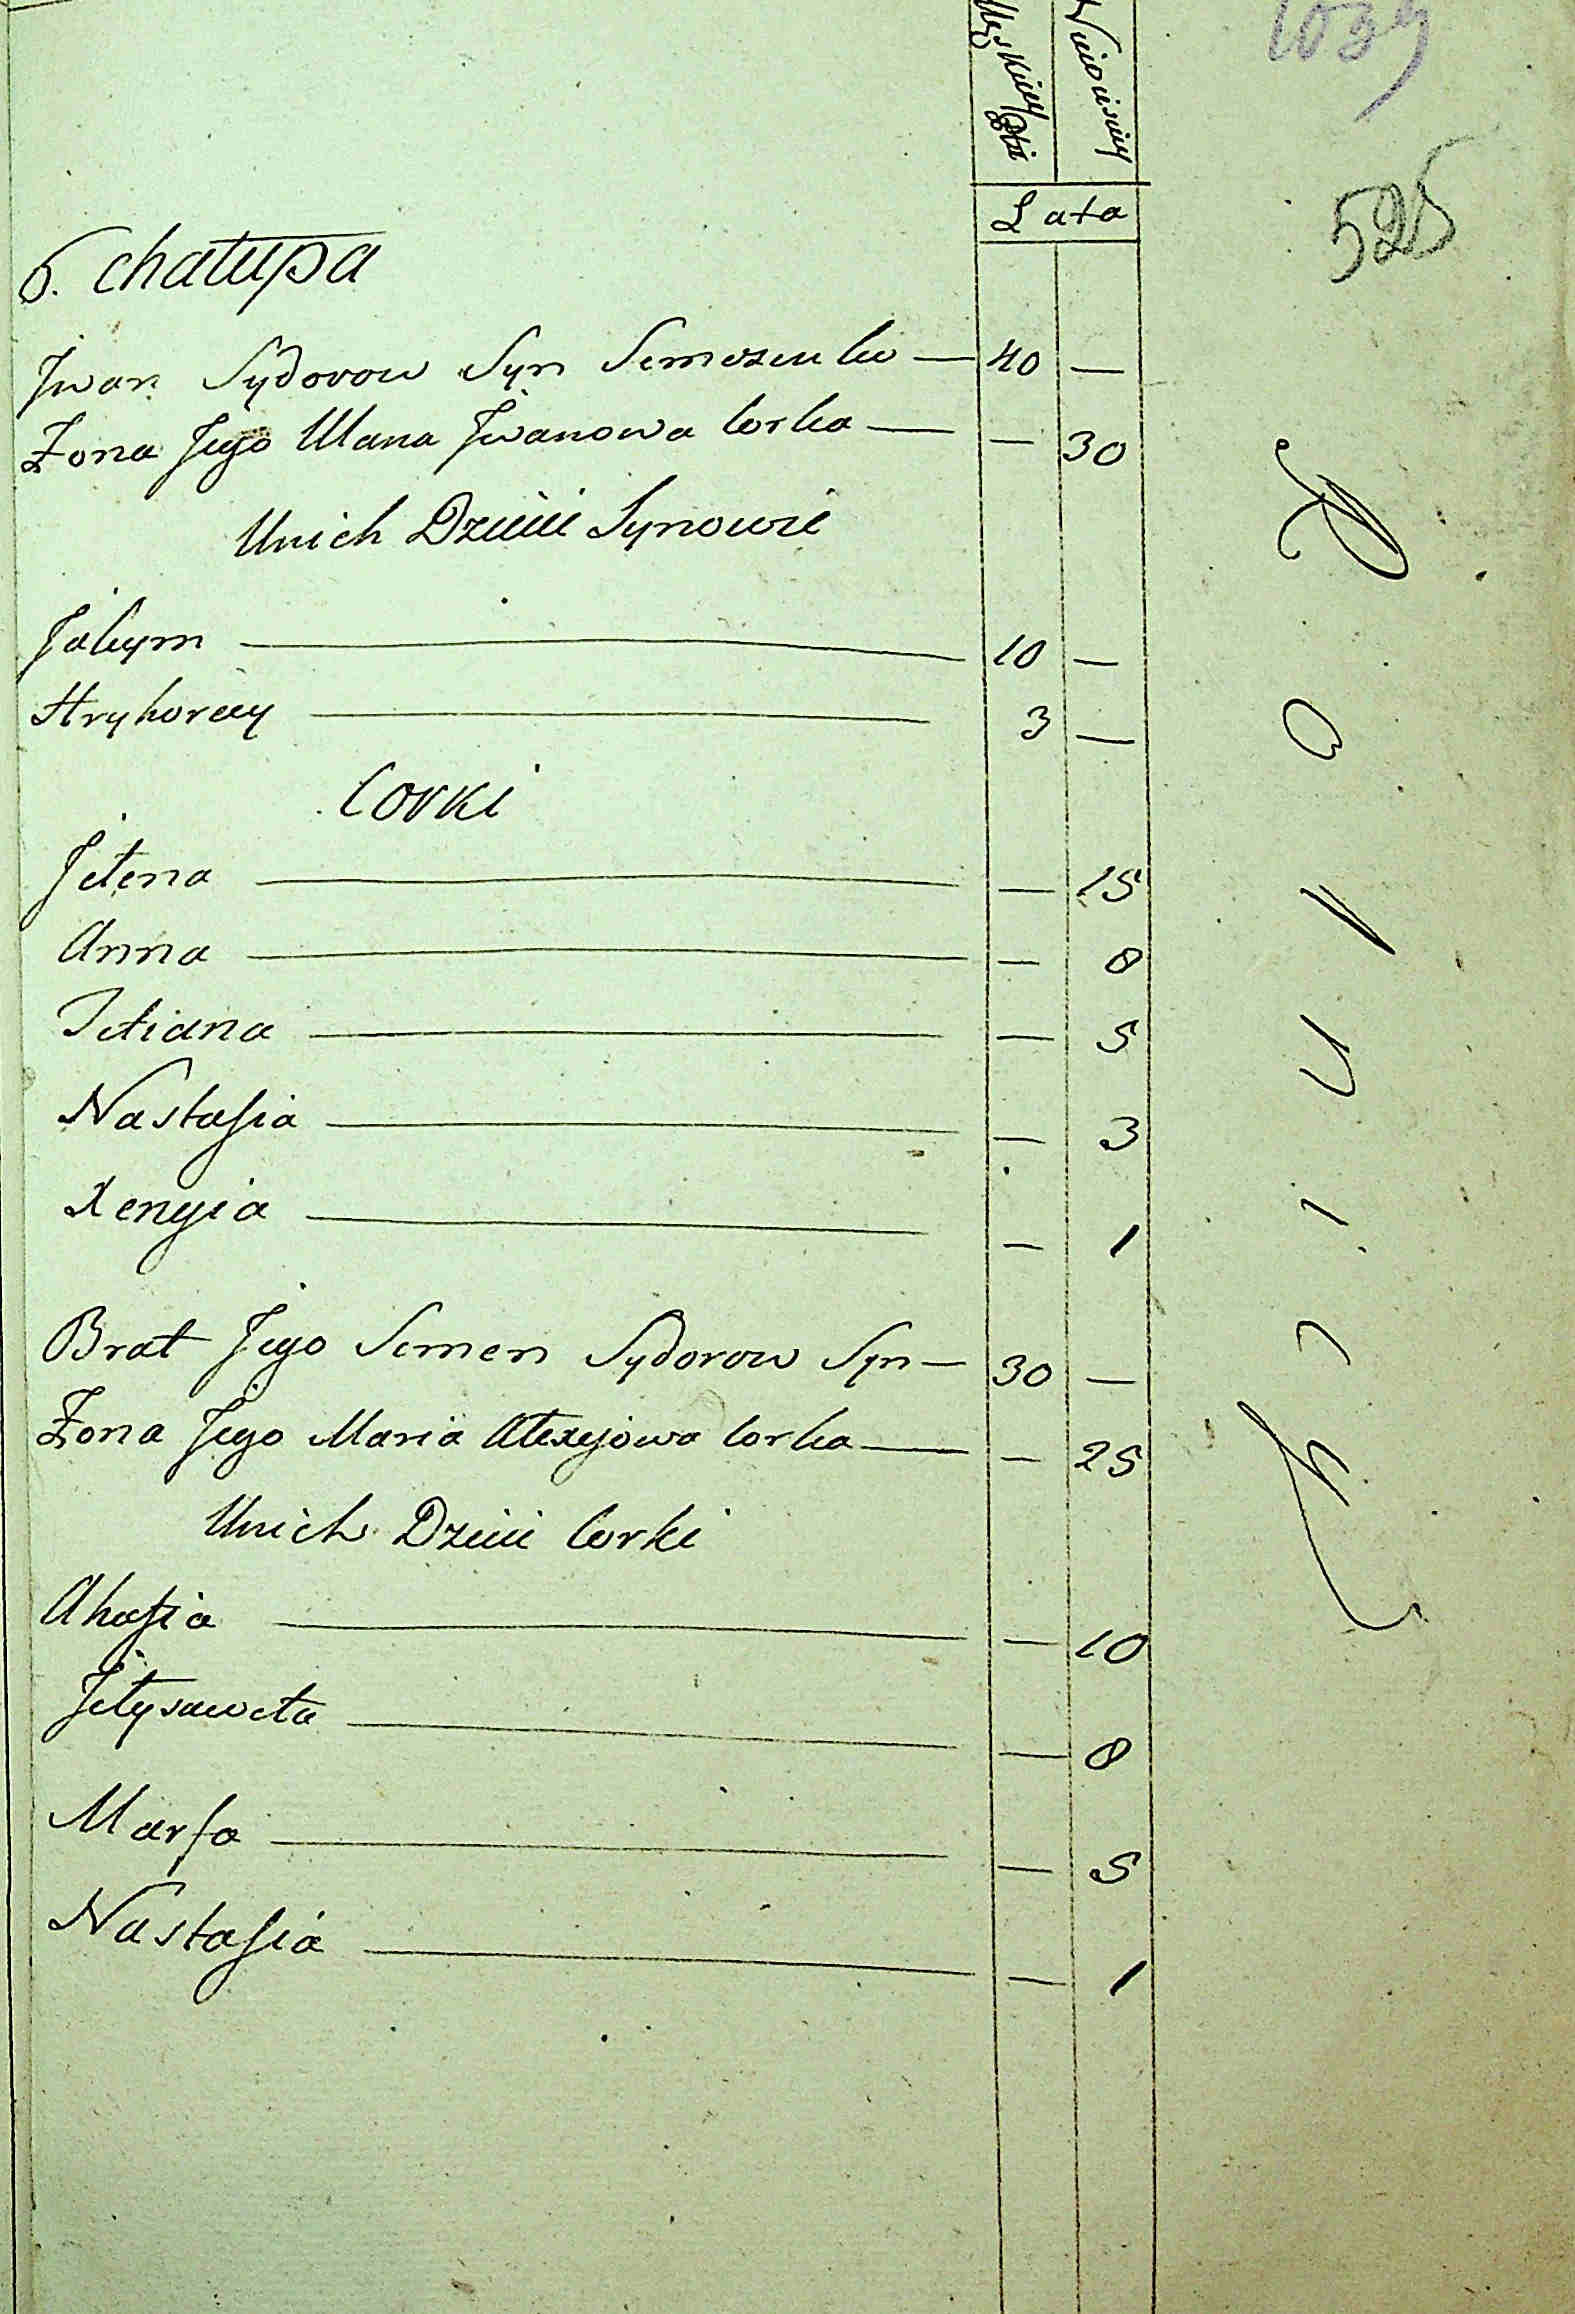 Męskiey Płci
Niewieściey
1039
Lata
525
6. Chałupa
Jwan Sydorow Syn Semeszenko — 40 —
Żona Jego Ulana Jwanowa Corka — — 30
Unich Dzieci Synowie
Jakym — 10 —
Hryhorey — 3 —
Corki
Jełena — — 15
Anna — — 8
Tetiana — — 5
Nastasia — — 3
Xenyia — — 1
Brat Jego Semen Sydorow Syn — 30 —
Żona Jego Maria Ałexejowa Corka — — 25
Unich Dzieci Corki
Ahafia — — 10
Jełysaweta — — 8
Marfa — — 5
Nastasia — — 1